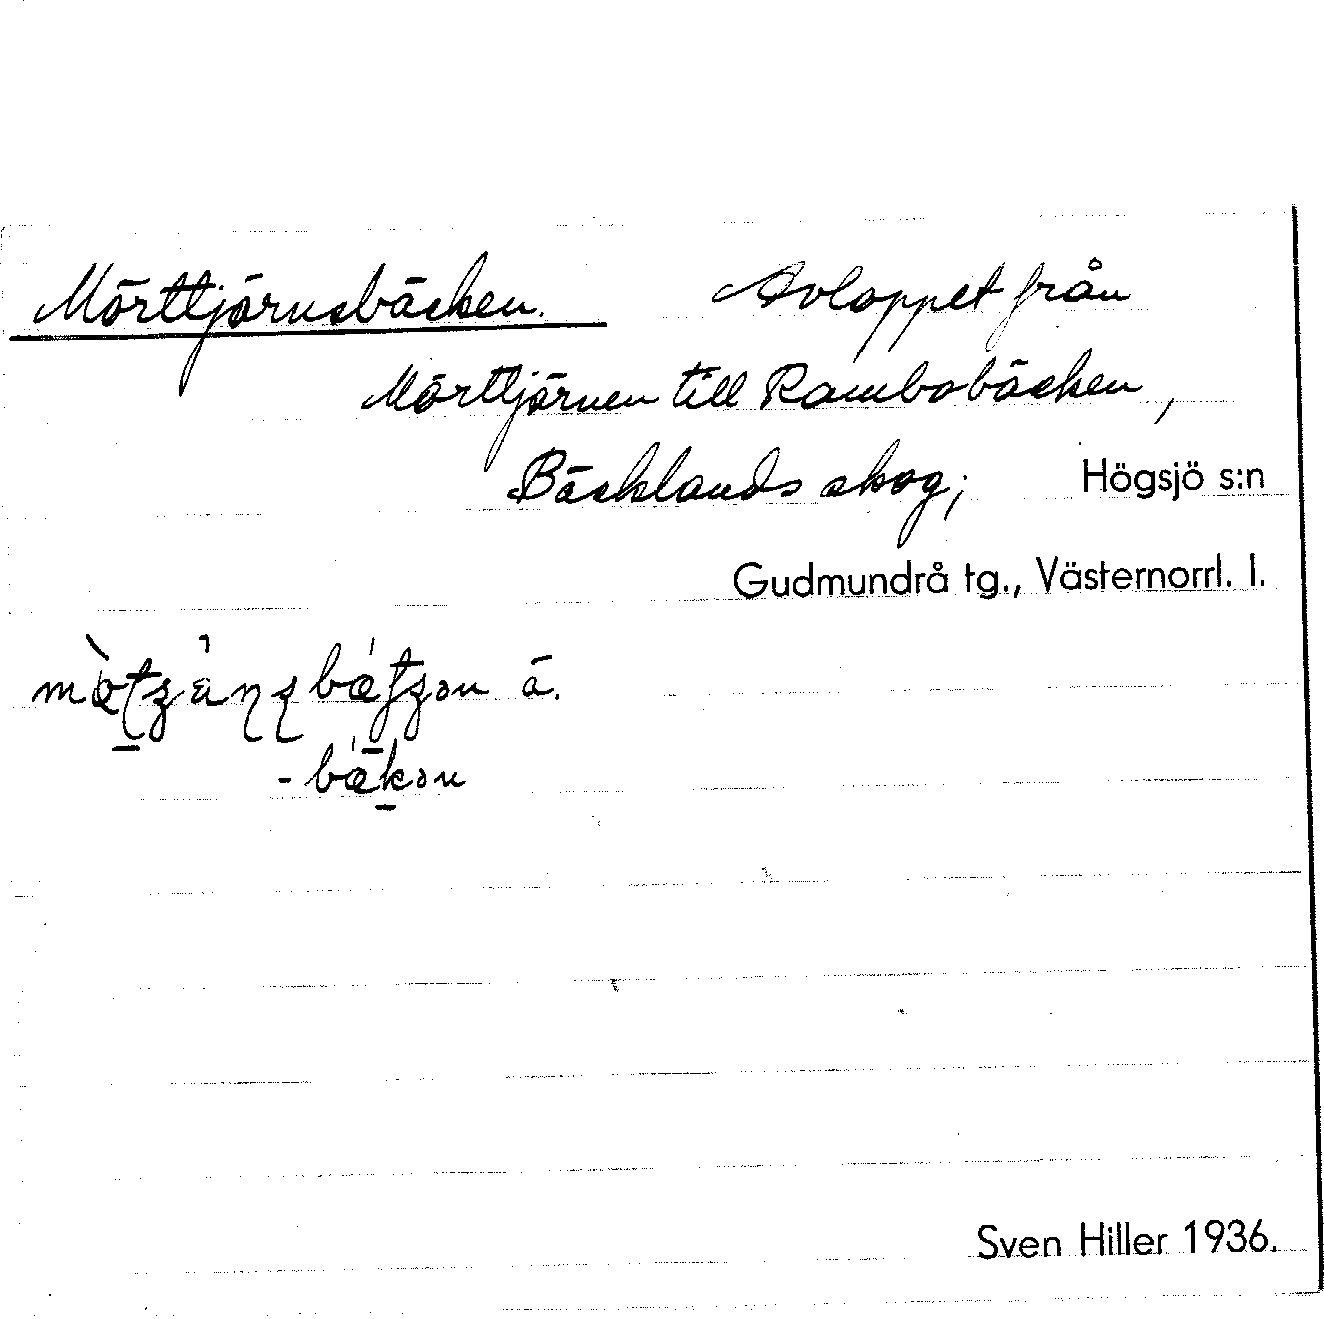 Mörttjärnsbäcken. Avloppet från
Mörttjärnen till Rambobäcken,
Bäcklands skog; Högsjö s:n
Gudmundrå tg., Västernorrl. l.
ā.
Sven Hiller 1936.